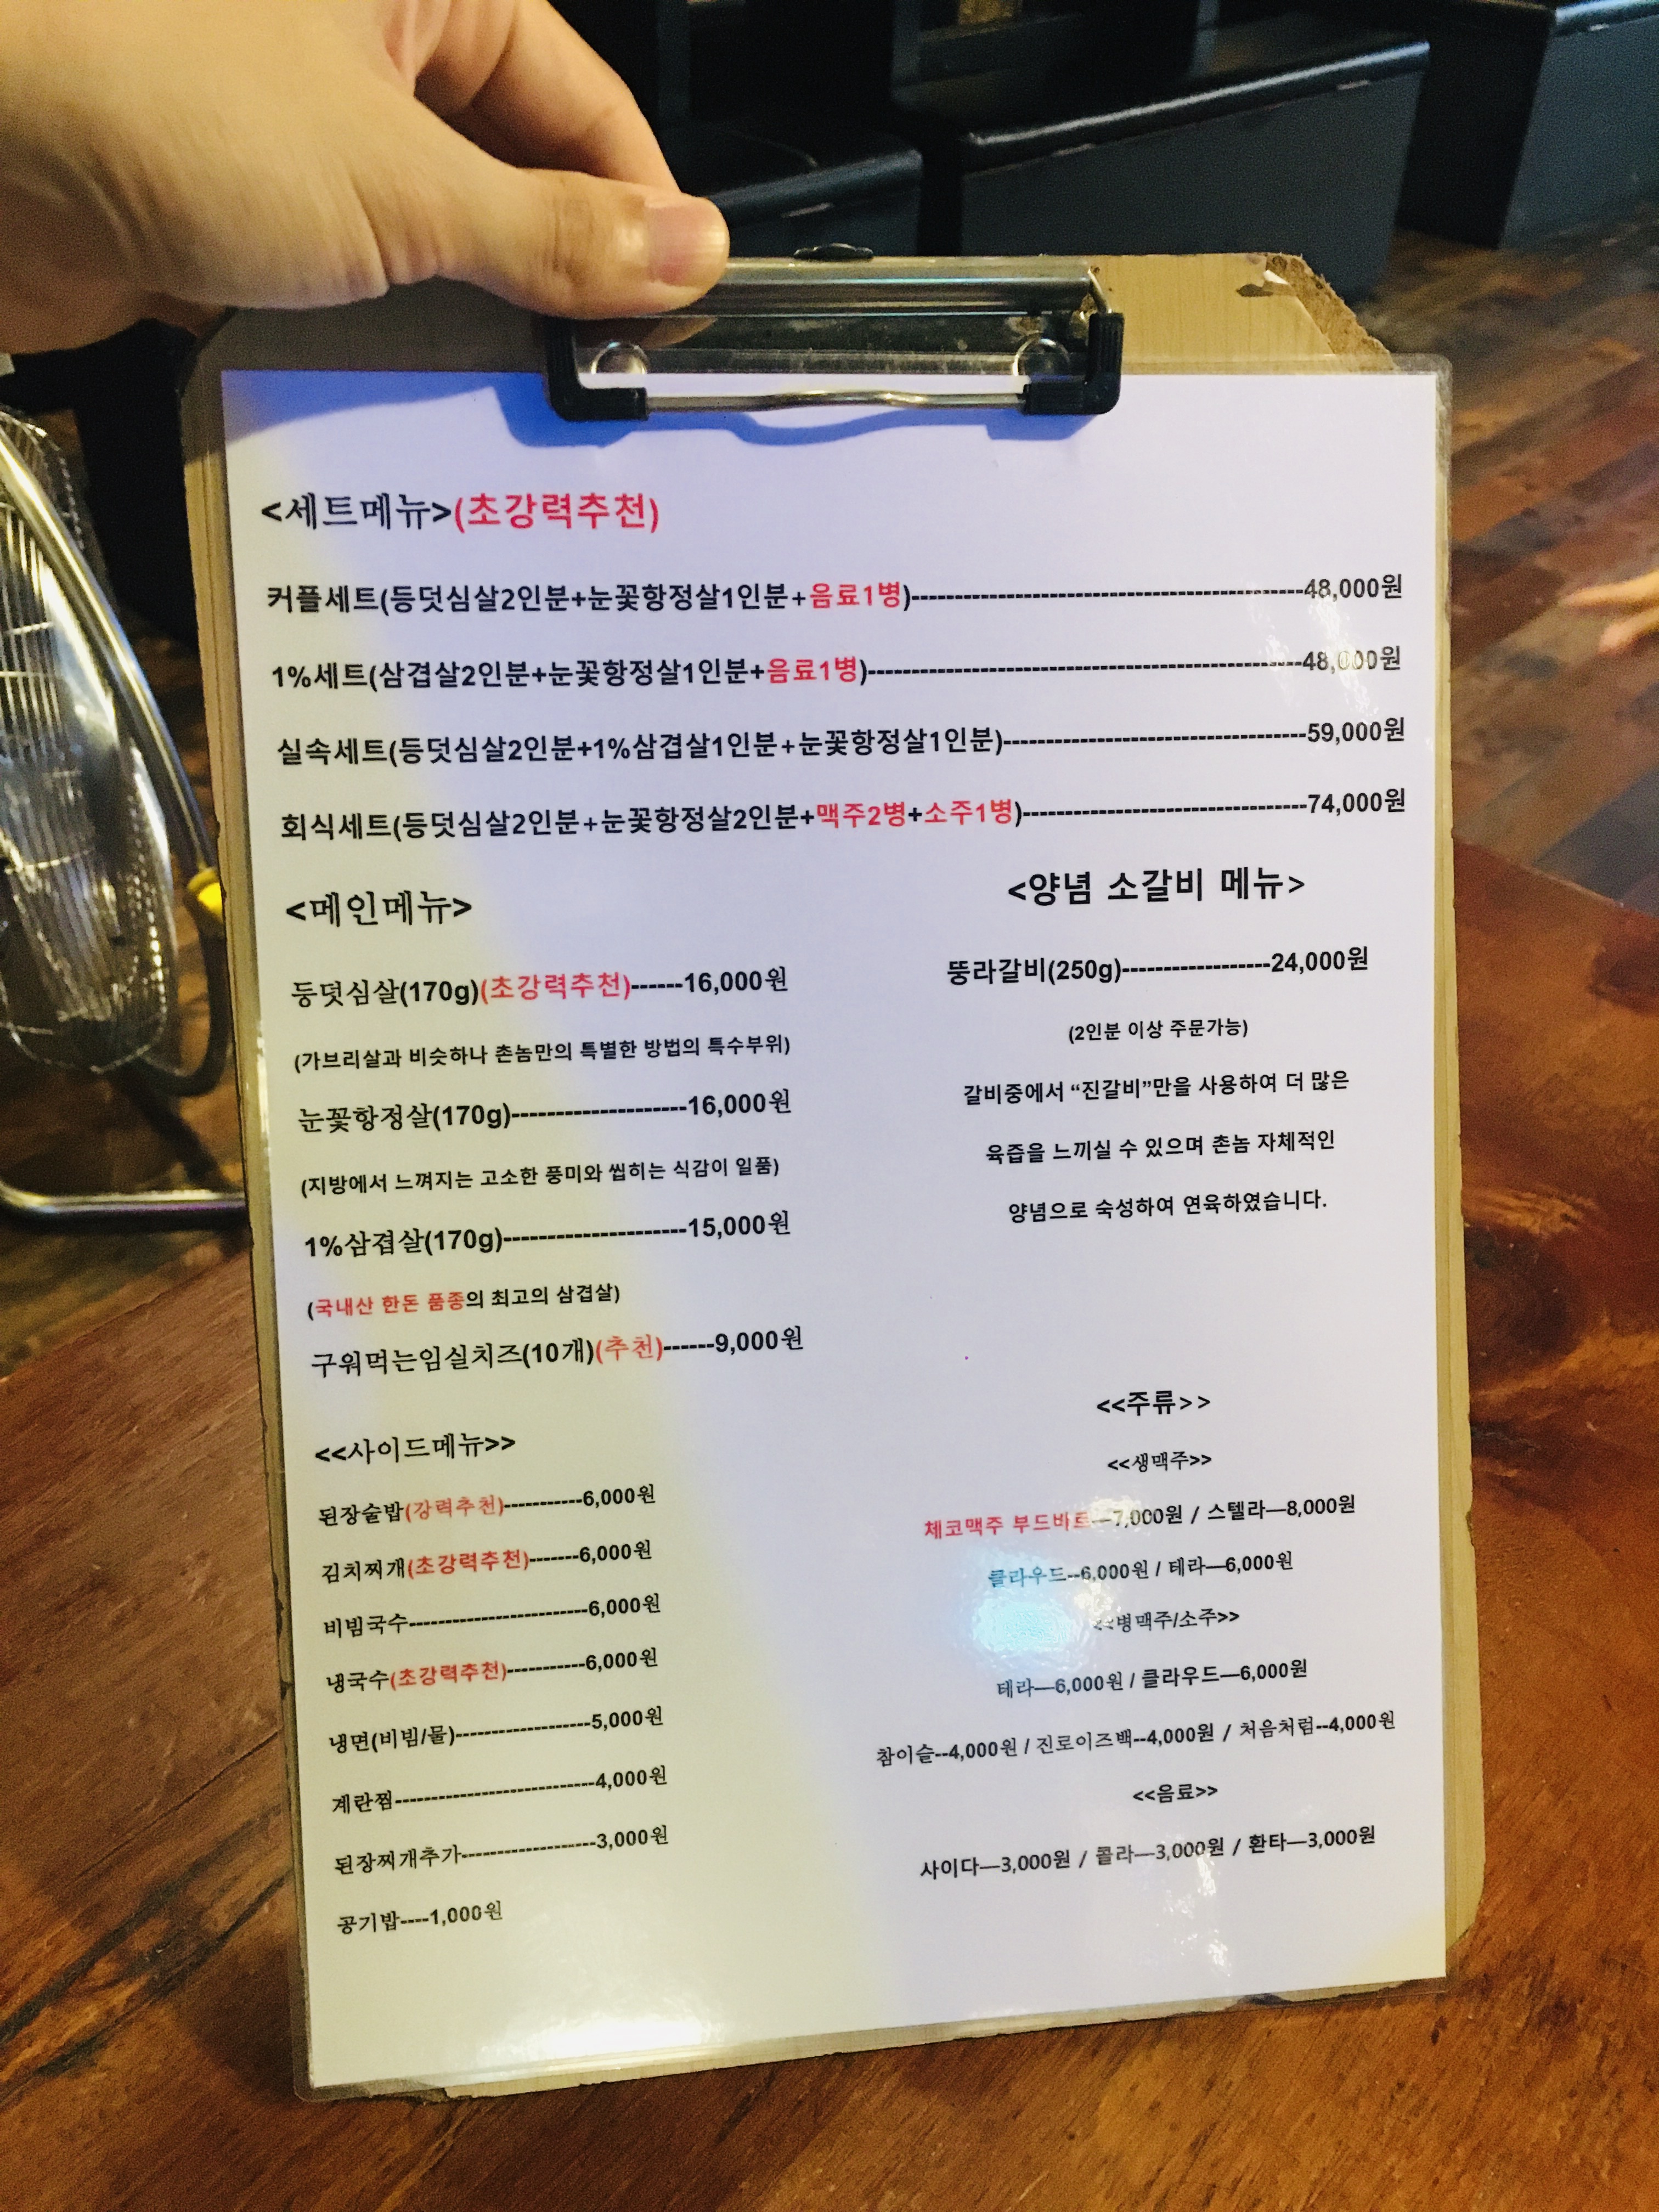 <세트메뉴>(초강력추천)
커플세트(등덧심살2인분+눈꽃항정살1인분+음료1병)------48,000원
1%세트(삼겹살2인분+눈꽃항정살1인분+음료1병)------48,000원
실속세트(등덧심살2인분+1%삼겹살1인분+눈꽃항정살1인분)------59,000원
회식세트(등덧심살2인분+눈꽃항정살2인분+맥주2병+소주1병)------74,000원
<메인메뉴>
등덧심살(170g)(초강력추천)------16,000원
(가브리살과 비슷하나 촌놈만의 특별한 방법의 특수부위)
눈꽃항정살(170g)------16,000원
(지방에서 느껴지는 고소한 풍미와 씹히는 식감이 일품)
1%삼겹살(170g)------15,000원
(국내산 한돈 품종의 최고의 삼겹살)
구워먹는임실치즈(10개)(추천)------9,000원
<<사이드메뉴>>
된장술밥(강력추천)-----------6,000원
김치찌개(초강력추천)-------6,000원
비빔국수------6,000원
냉국수(초강력추천)-----------6,000원
냉면(비빔/물)------5,000원
계란찜------4,000원
된장찌개추가------3,000원
공기밥----1,000원
<양념 소갈비 메뉴>
뚱라갈비(250g)------24,000원
(2인분 이상 주문가능)
갈비중에서 “진갈비”만을 사용하여 더 많은
육즙을 느끼실 수 있으며 촌놈 자체적인
양념으로 숙성하여 연육하였습니다.
<<주류>>
<<생맥주>>
체코맥주 부드바르—7,000원 / 스텔라—8,000원
클라우드--6,000원 / 테라—6,000원
<<병맥주/소주>>
테라—6,000원 / 클라우드—6,000원
참이슬--4,000원 / 진로이즈백--4,000원 / 처음처럼--4,000원
<<음료>>
사이다—3,000원 / 콜라—3,000원 / 환타—3,000원